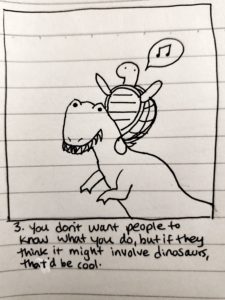 3. You don't want people to
know what you do, but if they
think it might involve dinosaurs,
that'd be cool.